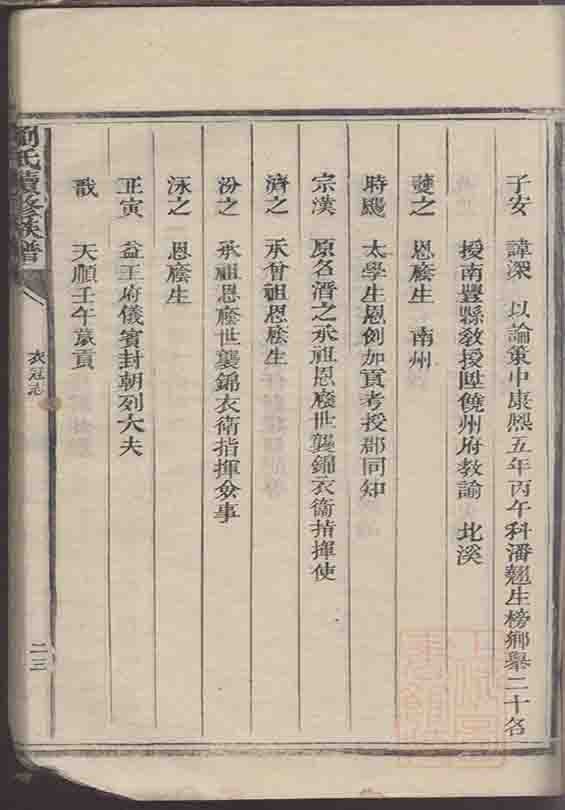 子安 諱深 以論策中康熙五年丙午科潘翹生榜鄉舉二十名
授南豐縣教授陞饒州府教諭 北溪
夔之 恩廕生 南州
時颺 太學生恩例加貢考授郡同知
宗漢 原名潛之承祖恩廕世襲錦衣衛指揮使
濟之 承曾祖恩廕生
汾之 承祖恩廕世襲錦衣衛指揮僉事
泳之 恩廕生
正寅 益王府儀賓封朝列大夫
戩 天順壬午歲貢
劉氏續修族譜
衣冠志
二三